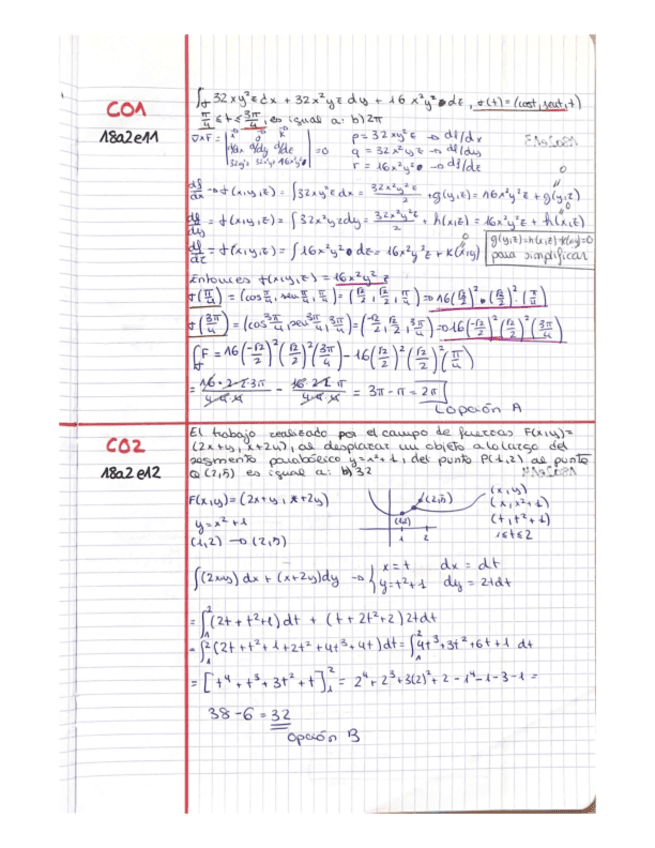 CO1
18a2e11
∫σ 32xy²z dx + 32x²yz dy + 16x²y² dz, σ(t) = (cost, sent, t)
π/4 ≤ t ≤ 3π/4, es igual a: b) 2π
∇xF = | i j k | d/dx d/dy d/dz | = 0
p = 32xy²z → df/dx
q = 32x²yz → df/dy
r = 16x²y² → df/dz
df/dx → f(x,y,z) = ∫32xy²z dx = 32x²y²z/2 + g(y,z) = 16x²y²z + g(y,z)
df/dy = f(x,y,z) = ∫32x²yz dy = 32x²y²z/2 + h(x,z) = 16x²y²z + h(x,z)
df/dz = f(x,y,z) = ∫16x²y² dz = 16x²y²z + k(x,y)
g(y,z)=h(x,z)=k(x,y)=0
para simplificar
Entonces f(x,y,z) = 16x²y²z
σ(π/4) = (cos π/4, sen π/4, π/4) = (√2/2, √2/2, π/4) => 16(√2/2)² · (√2/2)² · (π/4)
σ(3π/4) = (cos 3π/4, sen 3π/4, 3π/4) = (-√2/2, √2/2, 3π/4) => 16(-√2/2)² (√2/2)² (3π/4)
∫σ F = 16(-√2/2)² (√2/2)² (3π/4) - 16(√2/2)² (√2/2)² (π/4)
= 16·2·2·3π/4·4·4 - 16·2·2·π/4·4·4 = 3π - π = 2π
opción A
CO2
18a2e12
El trabajo realizado por el campo de fuerzas F(x,y)=
(2x+y, x+2y), al desplazar un objeto a lo largo del
segmento parabólico y=x²+1, del punto P(1,2) al punto
Q(2,5) es igual a: b) 32
F(x,y) = (2x+y, x+2y)
y = x²+1
(1,2) → (2,5)
(2,5)
(1,2)
1 2
(x,y)
(x, x²+1)
(t, t²+1)
1≤t≤2
∫(2x+y) dx + (x+2y)dy → { x = t dx = dt
y = t²+1 dy = 2tdt
= ∫₁² (2t + t²+1) dt + (t + 2t²+2) 2tdt
= ∫₁² (2t + t² + 1 + 2t² + 4t³ + 4t) dt = ∫₁² 4t³ + 3t² + 6t + 1 dt
= [t⁴ + t³ + 3t² + t]₁² = 2⁴ + 2³ + 3(2)² + 2 - 1⁴ - 1 - 3 - 1 =
38 - 6 = 32
opción B